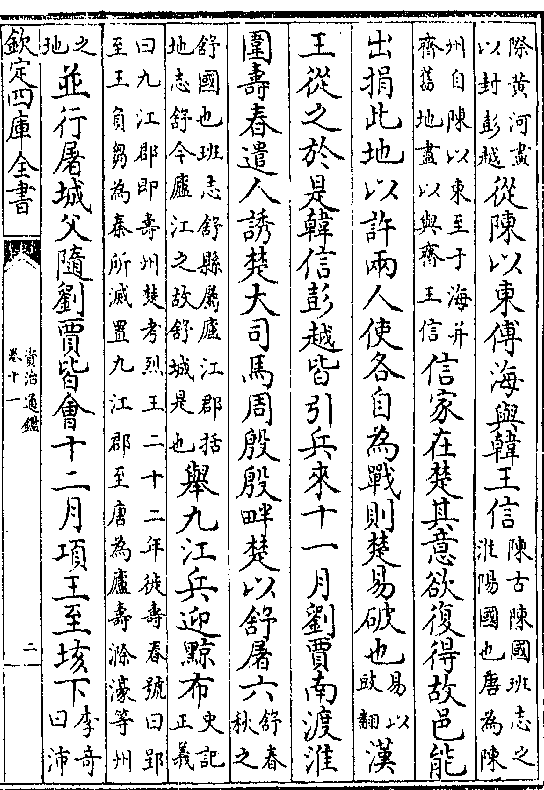 際黃河盡
以封彭越從陳以東傅海與韓王信陳古陳國班志之
淮陽國也唐為陳
州自陳以東至于海并
齊舊地盡以與齊王信信家在楚其意欲復得故邑能
出捐此地以許兩人使各自為戰則楚易破也易以
䜴翻漢
王從之於是韓信彭越皆引兵來十一月劉賈南渡淮
圍壽春遣人誘楚大司馬周殷殷畔楚以舒屠六舒春
秋之
舒國也班志舒縣屬廬江郡括
地志舒今廬江之故舒城是也舉九江兵迎黥布史記
正義
曰九江郡即壽州楚考烈王二十二年徙壽春號曰郢
至王負芻為秦所滅置九江郡至唐為廬壽滁濠等州
之
地並行屠城父隨劉賈皆會十二月項王至垓下李奇
曰沛
欽定四庫全書
資治通鑑
卷十一
二